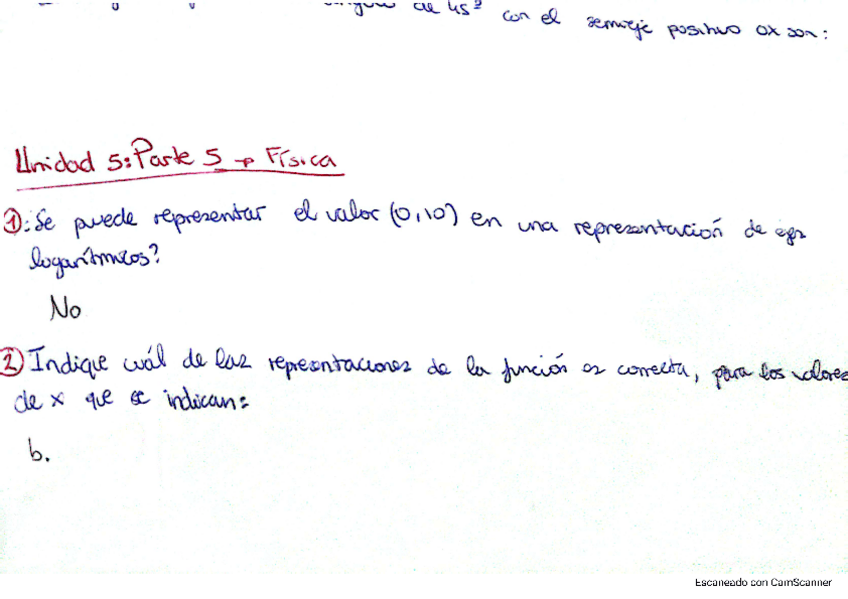 de 45º con el semieje positivo ox son:
Unidad 5: Parte 5 → Física
①: Se puede representar el valor (0,10) en una representación de ejes
logarítmicos?
No
② Indique cuál de las representaciones de la función es correcta, para los valores
de x que se indican:
b.
Escaneado con CamScanner